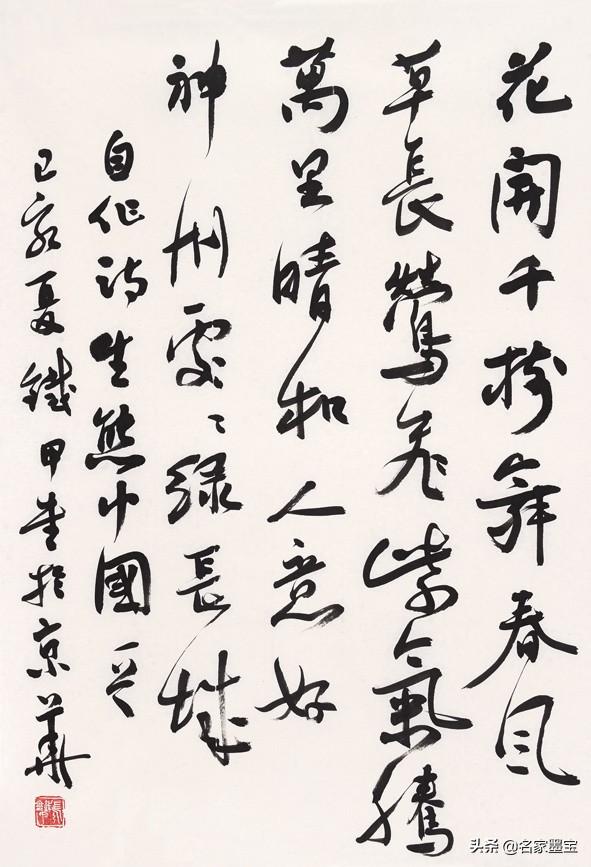 花開千樹舞春風
草長鶯飛紫氣騰
萬里晴和人意好
神州處〻綠長城
自作詩生態中國
己亥夏鐵甲書於京華
头条 @名家墨宝